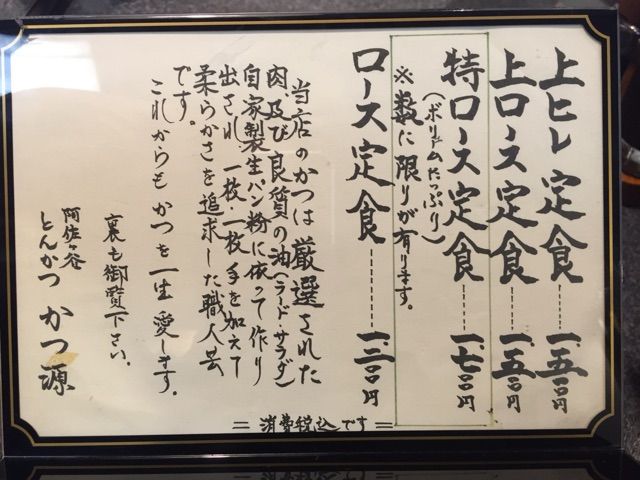 上ヒレ定食………一、五〇〇円
上ロース定食………一、五〇〇円
特ロース定食………一、七〇〇円
（ボリュームたっぷり）
※数に限りが有ります。
ロース定食………一、二〇〇円
当店のかつは厳選された
肉及び良質の油（ラード・サラダ）
自家製生パン粉に依って作り
出され一枚一枚手を加えて
柔らかさを追求した職人芸
です。
これからもかつを一生愛します。
裏も御覧下さい。
阿佐ヶ谷
とんかつ かつ源
＝消費税込です＝